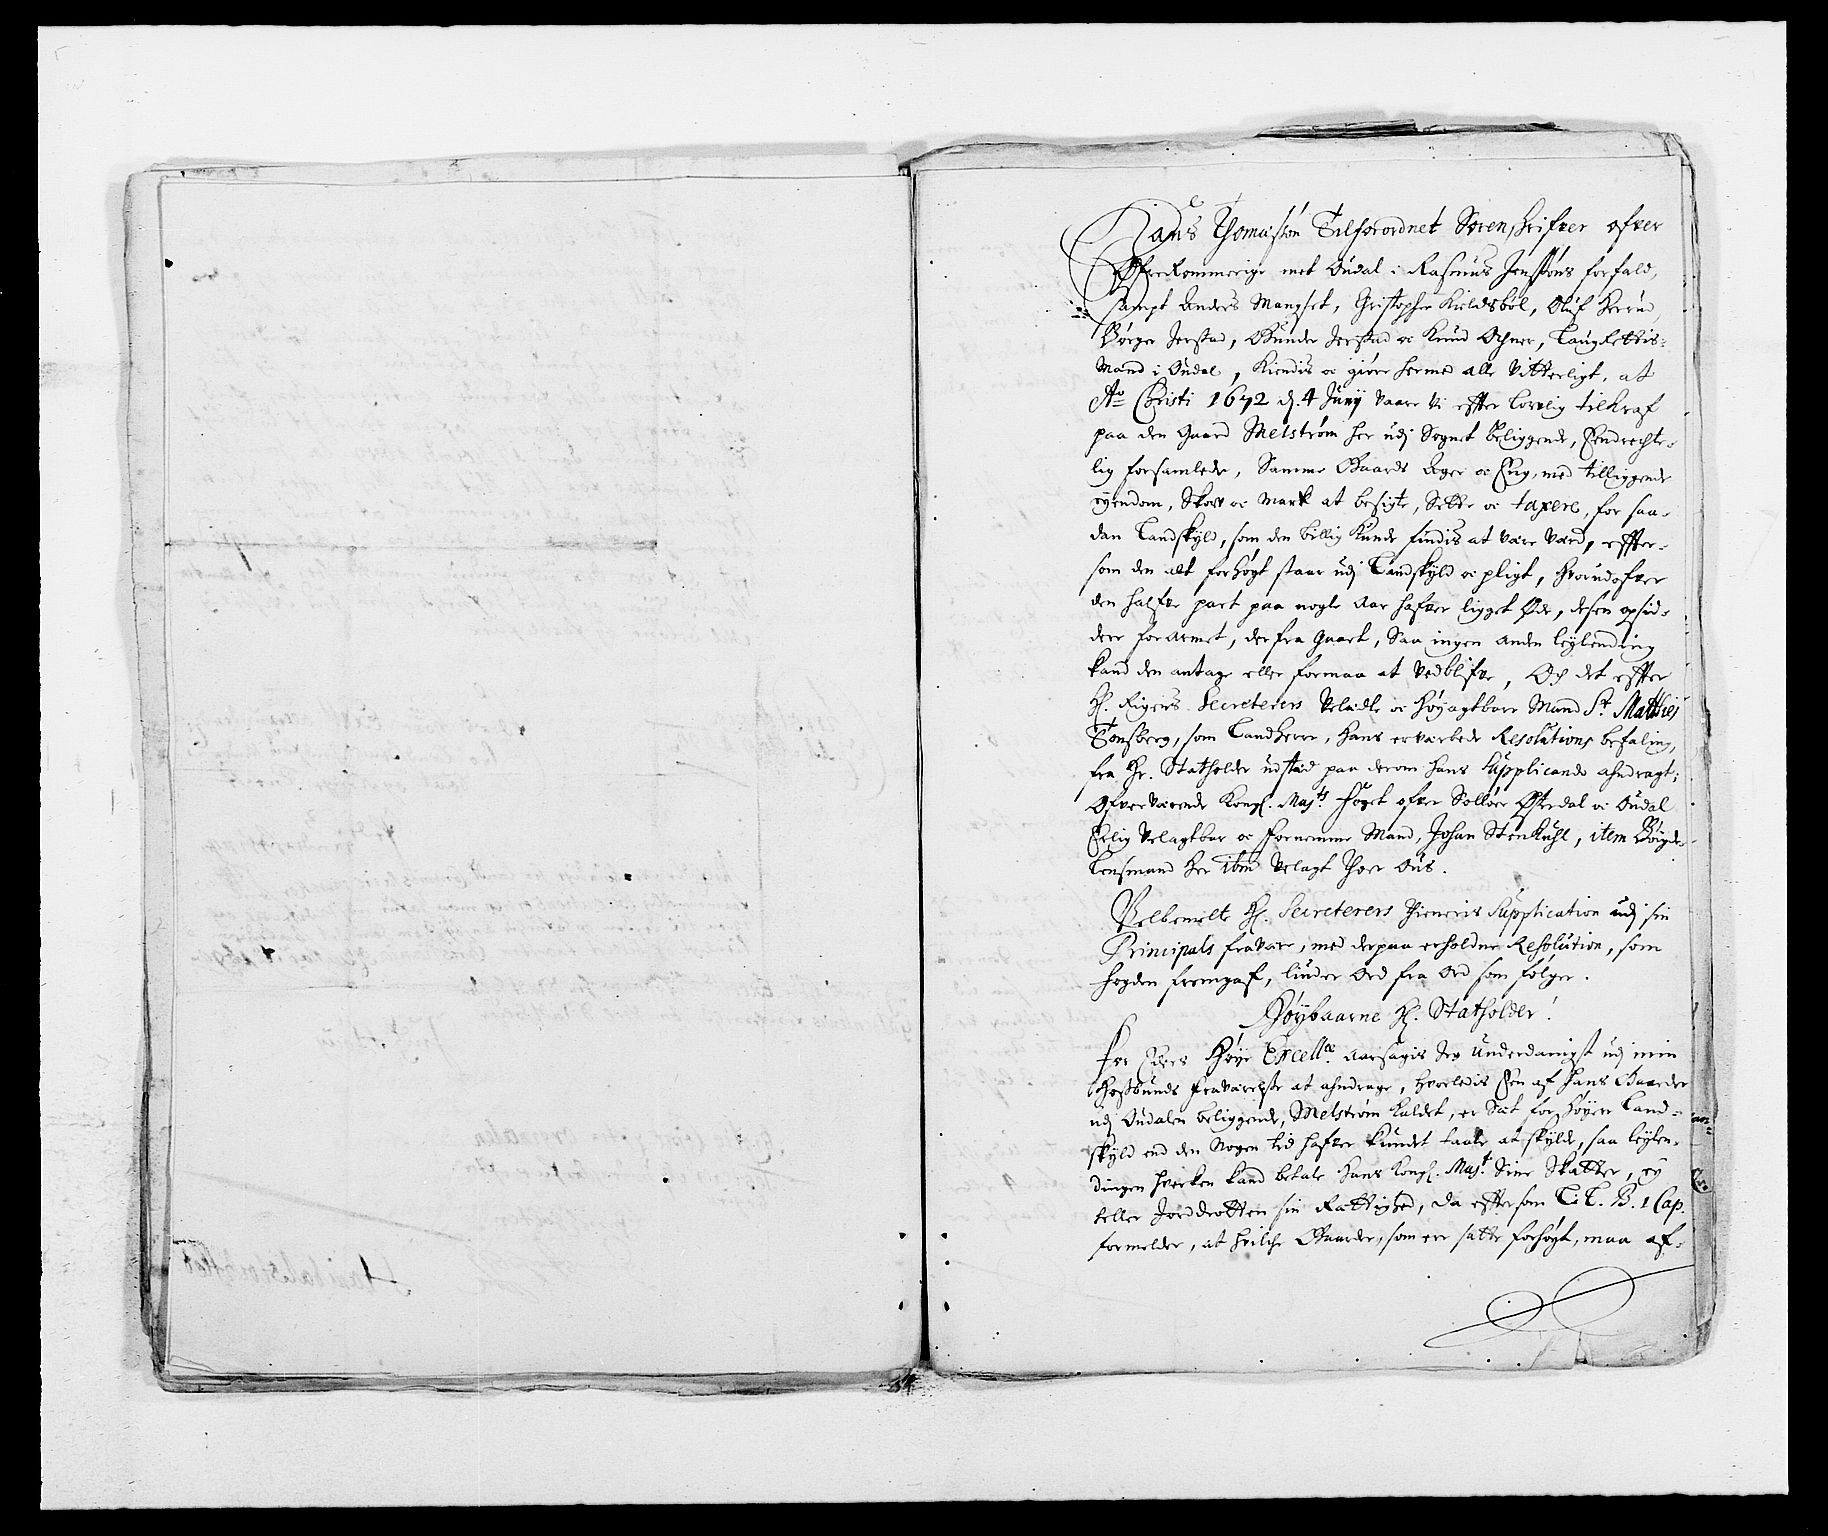 Hans Thomassøn Tilforordnet Sorenskrifver ofver
Øfre Rommerige met Oudal i Rasmus Jenssøns forfald,
sampt Anders Mangset, Christopher Kieldsbøl, Oluf Herrud,
Børger Jerstad, Gunder Jerstad oc Knud Ochner, Laugrettis-
Mænd i Oudal, Kiendis oc giøre hermed alle Vitterligt, at
Ao Christi 1672 d. 4 Junij vaare Vi effter lovlig tilkraf
paa den Gaard Melstrøm her udj Sognet beliggende, Eendrechte-
lig forsamlede, Samme Gaards Ager oc Eng, med tilliggende
eyendom, Skov oc Mark at besigte, Sette oc taxere, for saa-
dan Landskyld, som den billig kunde findis at være værd, effter-
som den alt forhøyt staar udj Landskyld oc pligt, hvorudofver
den halfve part paa nogle Aar hafver ligget Øde, desen opsid-
dere forarmet, derfra Gaaet, Saa ingen anden leylending
kand den antage eller formaa at vedblifve, Och det effter
H. Rigens Secreterers Velædle oc høyagtbare Mand Sr. Matthies
Tonsberg, som Landherre, hans erværbede Resolutions befaling,
fra Hr. Statholder udstæd paa derom hans Supplicande ahndragt;
Ofverværende Kongl. Majts foget ofver Solløer Østerdal oc Oudal
Erlig Velagtbar oc fornemme Mand, Johan Stenkuhl, item Bøygde-
Lensmand her ibm Velagt Thor Ous.
Velbemelte H. Secreterers Thieneris Supplication udj sin
Principals fraværr, med derpaa erholdne Resolution, som
fogden fremgaf, liuder Ord fra Ord som følger.
Høybaarne H. Statholder!
For Eders Høye Excellce aarsagis Jeg Underdanigst udj min
Hosbunds fraværelse at ahndrage, hvorledis Een af hans Gaarder
udj Oudalen beliggende, Melstrøm kaldet, er Sat for høyere Land-
skyld end den Nogen tid hafver kundet taale at skylde, saa leylen-
dingen hverken kand betale hans Kongl. Majt Sine Skatter, ey
heller Jorddrotten sin Rættighed, da effter som L. L. B. 1 Cap.
formelder, at hvilche Gaarder, som ere satte forhøyt, maa af-